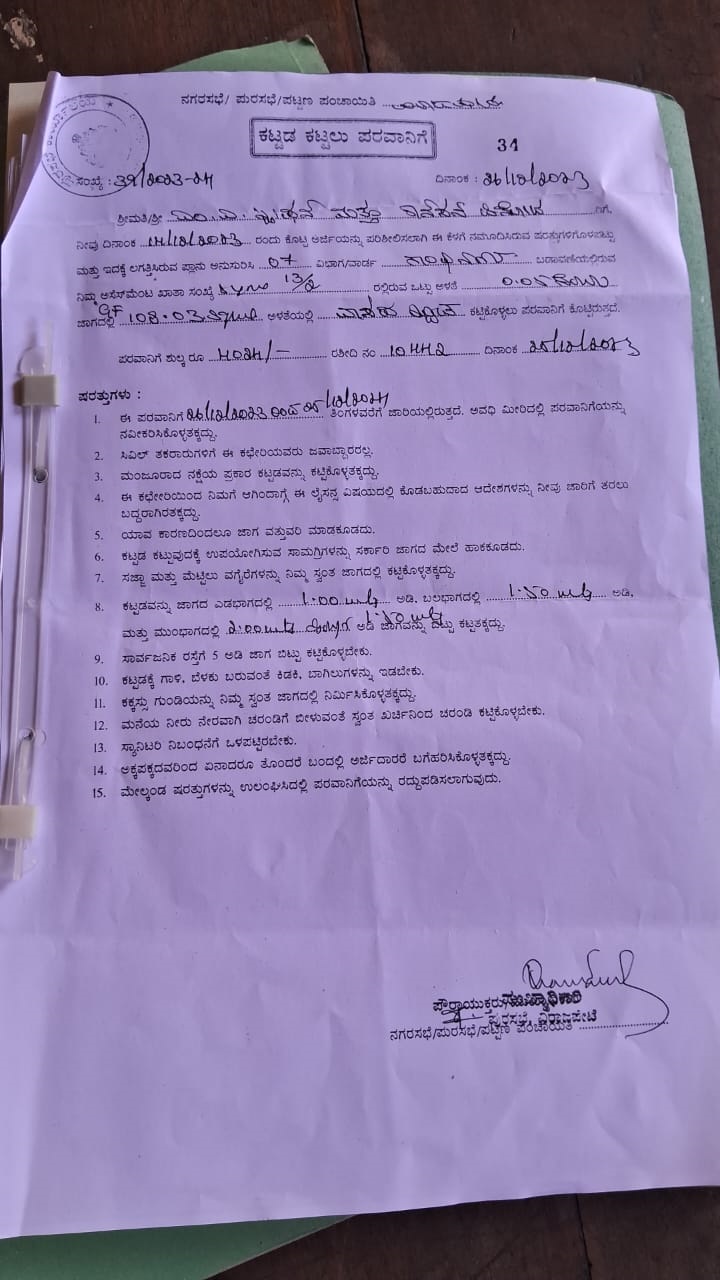 ನಗರಸಭೆ/ ಪುರಸಭೆ/ಪಟ್ಟಣ ಪಂಚಾಯಿತಿ
ಕಟ್ಟಡ ಕಟ್ಟಲು ಪರವಾನಿಗೆ
31
ಸಂಖ್ಯೆ: 39/2023-24 ದಿನಾಂಕ : 26/12/2023
ಶ್ರೀಮತಿ/ಶ್ರೀ ಮತ್ತು ಗೆ,
ನೀವು ದಿನಾಂಕ 14/12/2023 ರಂದು ಕೊಟ್ಟ ಅರ್ಜಿಯನ್ನು ಪರಿಶೀಲಿಸಲಾಗಿ ಈ ಕೆಳಗೆ ನಮೂದಿಸಿರುವ ಪರತ್ತುಗಳಿಗೊಳಪಟ್ಟು
ಮತ್ತು ಇದಕ್ಕೆ ಲಗತ್ತಿಸಿರುವ ಪ್ಲಾನು ಅನುಸರಿಸಿ 07 ವಿಭಾಗ/ವಾರ್ಡ ಬಡಾವಣೆಯಲ್ಲಿರುವ
ನಿಮ್ಮ ಅಸೆಸ್‌ಮೆಂಟ ಖಾತಾ ಸಂಖ್ಯೆ Syno 13/2 ರಲ್ಲಿರುವ ಒಟ್ಟು ಅಳತೆ 0.05
ಜಾಗದಲ್ಲಿ GF 108.03 ಅಳತೆಯಲ್ಲಿ ವಾಸದ ಕಟ್ಟಿಕೊಳ್ಳಲು ಪರವಾನಿಗೆ ಕೊಟ್ಟಿರುತ್ತದೆ.
ಪರವಾನಿಗೆ ಶುಲ್ಕ ರೂ 4024/- ರಶೀದಿ ನಂ 10442 ದಿನಾಂಕ 25/12/2023
ಷರತ್ತುಗಳು :
1. ಈ ಪರವಾನಿಗೆ 26/12/2023 ರಿಂದ 25/12/2024 ತಿಂಗಳವರೆಗೆ ಜಾರಿಯಲ್ಲಿರುತ್ತದೆ. ಅವಧಿ ಮೀರಿದಲ್ಲಿ ಪರವಾನಿಗೆಯನ್ನು
ನವೀಕರಿಸಿಕೊಳ್ಳತಕ್ಕದ್ದು.
2. ಸಿವಿಲ್ ತಕರಾರುಗಳಿಗೆ ಈ ಕಛೇರಿಯವರು ಜವಾಬ್ದಾರರಲ್ಲ.
3. ಮಂಜೂರಾದ ನಕ್ಷೆಯ ಪ್ರಕಾರ ಕಟ್ಟಡವನ್ನು ಕಟ್ಟಿಕೊಳ್ಳತಕ್ಕದ್ದು.
4. ಈ ಕಛೇರಿಯಿಂದ ನಿಮಗೆ ಆಗಿಂದಾಗ್ಗೆ ಈ ಲೈಸನ್ಸ ವಿಷಯದಲ್ಲಿ ಕೊಡಬಹುದಾದ ಆದೇಶಗಳನ್ನು ನೀವು ಜಾರಿಗೆ ತರಲು
ಬದ್ದರಾಗಿರತಕ್ಕದ್ದು.
5. ಯಾವ ಕಾರಣದಿಂದಲೂ ಜಾಗ ವತ್ತುವರಿ ಮಾಡಕೂಡದು.
6. ಕಟ್ಟಡ ಕಟ್ಟುವುದಕ್ಕೆ ಉಪಯೋಗಿಸುವ ಸಾಮಗ್ರಿಗಳನ್ನು ಸರ್ಕಾರಿ ಜಾಗದ ಮೇಲೆ ಹಾಕಕೂಡದು.
7. ಸಜ್ಜಾ ಮತ್ತು ಮೆಟ್ಟಿಲು ವಗೈರೆಗಳನ್ನು ನಿಮ್ಮ ಸ್ವಂತ ಜಾಗದಲ್ಲಿ ಕಟ್ಟಿಕೊಳ್ಳತಕ್ಕದ್ದು.
8. ಕಟ್ಟಡವನ್ನು ಜಾಗದ ಎಡಭಾಗದಲ್ಲಿ 1.00 mtg ಅಡಿ, ಬಲಭಾಗದಲ್ಲಿ 1.50 mtg ಅಡಿ,
ಮತ್ತು ಮುಂಭಾಗದಲ್ಲಿ 2.00 mtg 1.50 mtg ಅಡಿ ಜಾಗವನ್ನು ಬಿಟ್ಟು ಕಟ್ಟತಕ್ಕದ್ದು.
9. ಸಾರ್ವಜನಿಕ ರಸ್ತೆಗೆ 5 ಅಡಿ ಜಾಗ ಬಿಟ್ಟು ಕಟ್ಟಿಕೊಳ್ಳಬೇಕು.
10. ಕಟ್ಟಡಕ್ಕೆ ಗಾಳಿ, ಬೆಳಕು ಬರುವಂತೆ ಕಿಡಕಿ, ಬಾಗಿಲುಗಳನ್ನು ಇಡಬೇಕು.
11. ಕಕ್ಕಸ್ಸು ಗುಂಡಿಯನ್ನು ನಿಮ್ಮ ಸ್ವಂತ ಜಾಗದಲ್ಲಿ ನಿರ್ಮಿಸಿಕೊಳ್ಳತಕ್ಕದ್ದು.
12. ಮನೆಯ ನೀರು ನೇರವಾಗಿ ಚರಂಡಿಗೆ ಬೀಳುವಂತೆ ಸ್ವಂತ ಖರ್ಚಿನಿಂದ ಚರಂಡಿ ಕಟ್ಟಿಕೊಳ್ಳಬೇಕು.
13. ಸ್ಯಾನಿಟರಿ ನಿಬಂಧನೆಗೆ ಒಳಪಟ್ಟಿರಬೇಕು.
14. ಅಕ್ಕಪಕ್ಕದವರಿಂದ ಏನಾದರೂ ತೊಂದರೆ ಬಂದಲ್ಲಿ ಅರ್ಜಿದಾರರೆ ಬಗೆಹರಿಸಿಕೊಳ್ಳತಕ್ಕದ್ದು.
15. ಮೇಲ್ಕಂಡ ಷರತ್ತುಗಳನ್ನು ಉಲಂಘಿಸಿದಲ್ಲಿ ಪರವಾನಿಗೆಯನ್ನು ರದ್ದುಪಡಿಸಲಾಗುವುದು.
ಪೌರಾಯುಕ್ತರು/ಮುಖ್ಯಾಧಿಕಾರಿ
ಪುರಸಭೆ, ವಿರಾಜಪೇಟೆ
ನಗರಸಭೆ/ಪುರಸಭೆ/ಪಟ್ಟಣ ಪಂಚಾಯಿತಿ